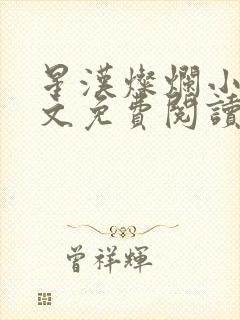 星漢燦爛小
文免費閱讀
曾祥輝